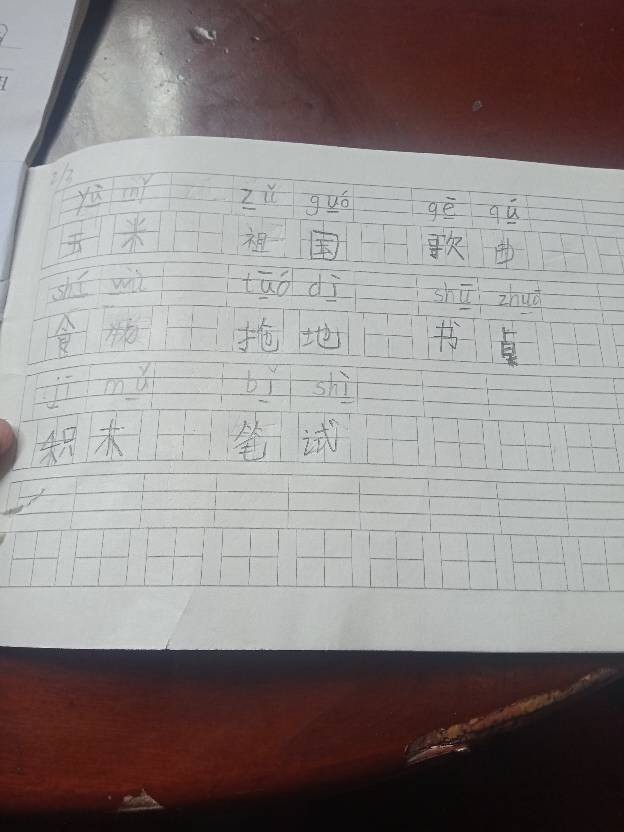 2/3
yù mǐ zǔ guó gē qǔ
玉 米 祖 国 歌 曲
shí wù tuō dì shū zhuō
食 物 拖 地 书 桌
jī mǔ bǐ shì
积 木 笔 试